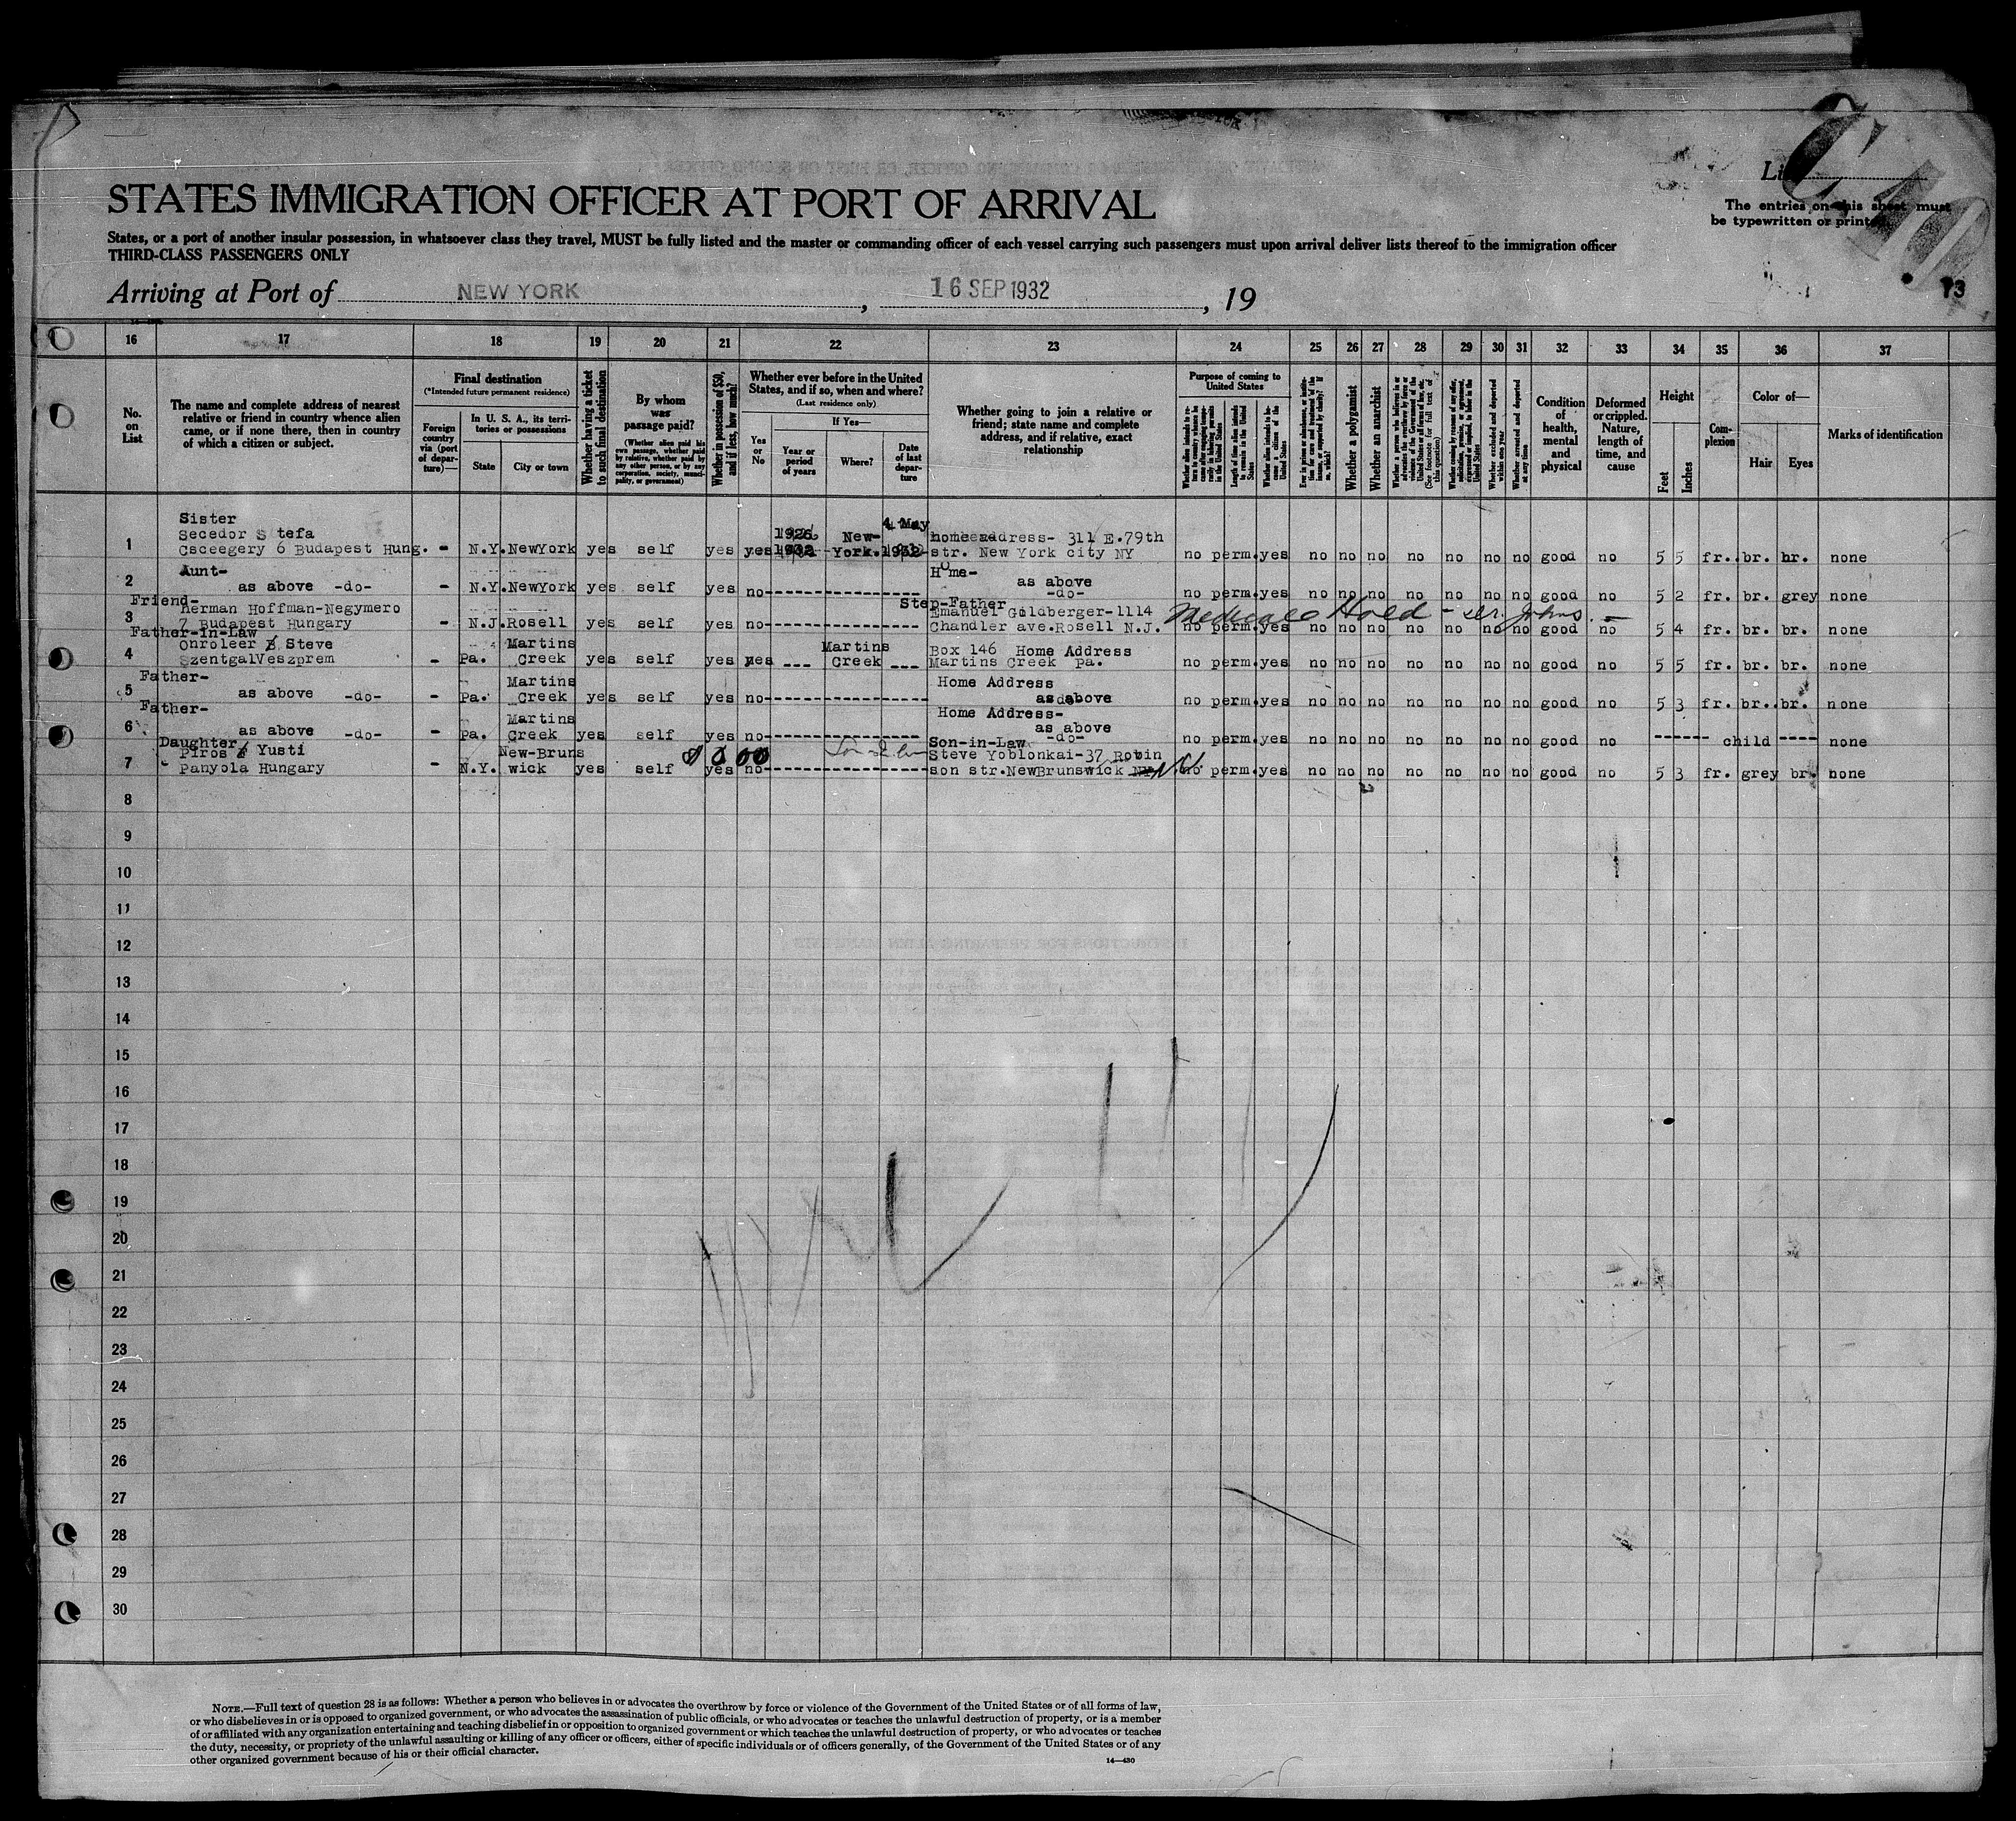 STATES IMMIGRATION OFFICER AT PORT OF ARRIVAL
The entries on this sheet must
be typewritten or printed.
States, or a port of another insular possession, in whatsoever class they travel, MUST be fully listed and the master or commanding officer of each vessel carrying such passengers must upon arrival deliver lists thereof to the immigration officer
THIRD-CLASS PASSENGERS ONLY
Arriving at Port of NEW YORK, 16 SEP 1932, 19
73
16 17 18 19 20 21 22 23 24 25 26 27 28 29 30 31 32 33 34 35 36 37
No. on List
The name and complete address of nearest
relative or friend in country whence alien
came, or if none there, then in country
of which a citizen or subject.
Final destination
(*Intended future permanent residence)
Foreign country via (port of departure)—
In U. S. A., its territories or possessions
State
City or town
Whether having a ticket to such final destination
By whom was passage paid?
(Whether alien paid his own passage, whether paid by relative, whether paid by any other person, or by any corporation, society, municipality, or government)
Whether in possession of $50, and if less, how much?
Whether ever before in the United
States, and if so, when and where?
(Last residence only)
Yes or No
If Yes—
Year or period of years
Where?
Date of last departure
Whether going to join a relative or
friend; state name and complete
address, and if relative, exact
relationship
Purpose of coming to United States
Length of time alien intends to remain in the United States
Whether alien intends to become a citizen of the United States
Whether a polygamist
Whether an anarchist
Whether excluded and deported within one year
Whether arrested and deported at any time
Condition of health, mental and physical
Deformed or crippled. Nature, length of time, and cause
Height
Feet
Inches
Complexion
Color of—
Hair
Eyes
Marks of identification
Sister 4 May
Secedor S tefa 1926 New- home address- 311 E.79th
1 Csceegery 6 Budapest Hung. - N.Y. NewYork yes self yes yes 1932 York. 1932 str. New York city NY no perm. yes no no no no no no no good no 5 5 fr. br. br. none
Aunt- Home-
as above
2 as above -do- - N.Y. NewYork yes self yes no -do- no perm. yes no no no no no no no good no 5 2 fr. br. grey none
Friend- Step-Father
Herman Hoffman-Negymero Emanuel Goldberger-1114 Medical Hold
3 7 Budapest Hungary - N.J. Rosell yes self yes no Chandler ave.Rosell N.J. no perm. yes no no no no no no no good no 5 4 fr. br. br. none
Father-in-Law
Onroleer Steve Martins Martins Box 146 Home Address
4 SzentgalVeszprem - Pa. Creek yes self yes yes --- Creek --- Martins Creek Pa. no perm. yes no no no no no no no good no 5 5 fr. br. br. none
Father- Martins Home Address
5 as above -do- - Pa. Creek yes self yes no as above no perm. yes no no no no no no no good no 5 3 fr. br. br. none
Father- Martins Home Address-
as above
6 as above -do- - Pa. Creek yes self yes no -do- no perm. yes no no no no no no no good no ------ child ---- none
Daughter Son-in-Law
Piros Yusti New-Bruns Steve Yoblonkai-37 Robin
7 Panyola Hungary - N.Y. wick yes self yes no son str.NewBrunswick no perm. yes no no no no no no no good no 5 3 fr. grey br. none
8
9
10
11
12
13
14
15
16
17
18
19
20
21
22
23
24
25
26
27
28
29
30
NOTE.—Full text of question 28 is as follows: Whether a person who believes in or advocates the overthrow by force or violence of the Government of the United States or of all forms of law,
or who disbelieves in or is opposed to organized government, or who advocates the assassination of public officials, or who advocates or teaches the unlawful destruction of property, or is a member
of or affiliated with any organization entertaining and teaching disbelief in or opposition to organized government or which teaches the unlawful destruction of property, or who advocates or teaches
the duty, necessity, or propriety of the unlawful assaulting or killing of any officer or officers, either of specific individuals or of officers generally, of the Government of the United States or of any
other organized government because of his or their official character.
14—430